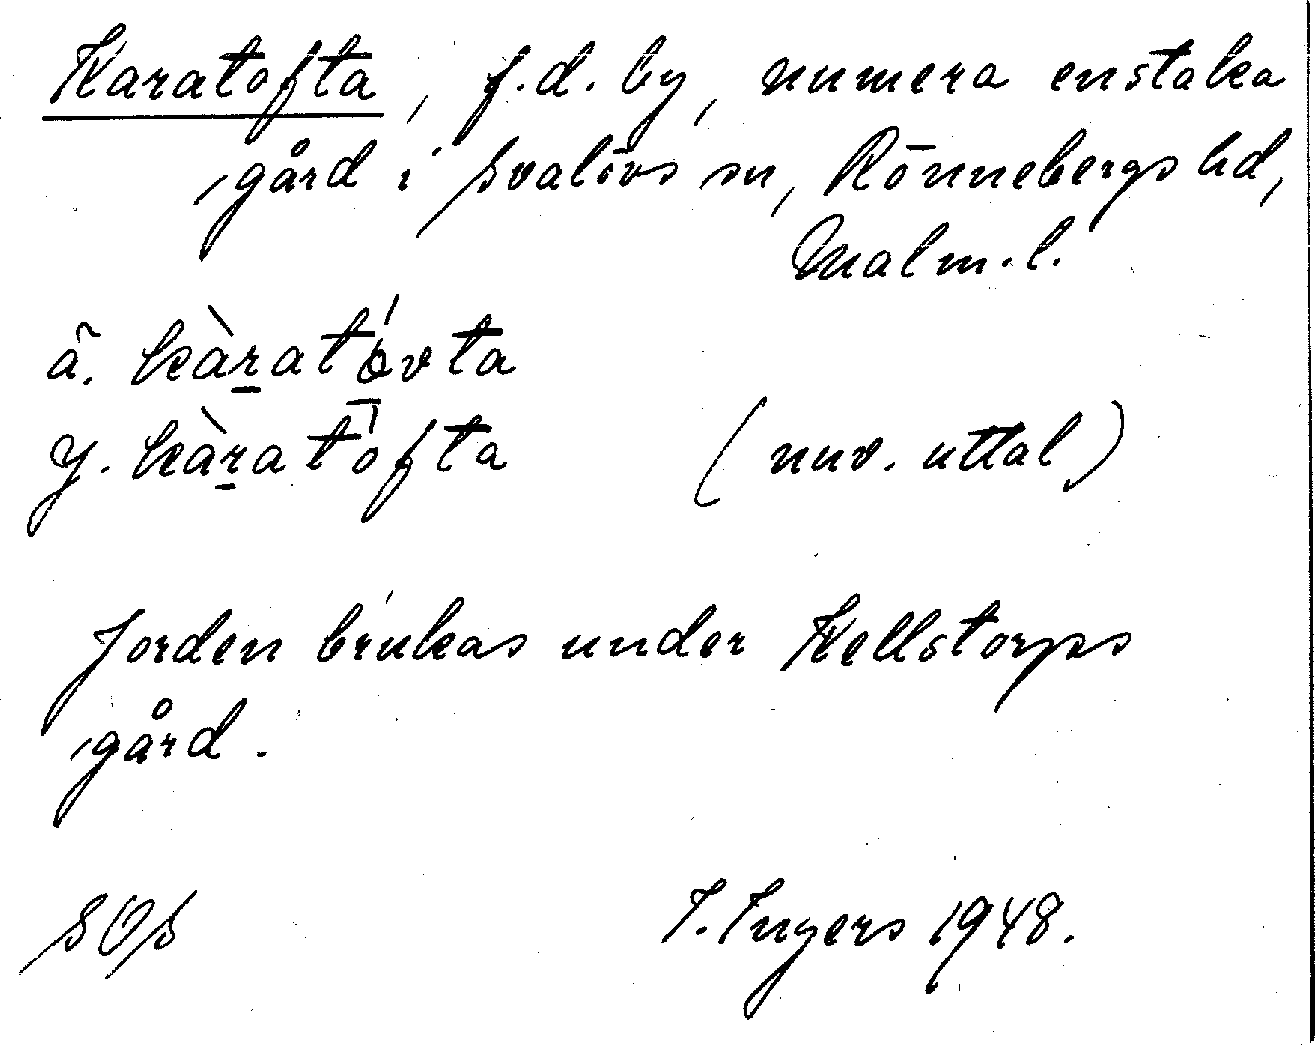 Karatofta, f.d. by, numera enstaka
gård i Svalövs sn, Rönnebergs hd,
Malm.l.
ä. kàrató̱vta
y. kàratófta (nuv. uttal)
Jorden brukas under Kellstorps
gård.
SOS
I. Ingers 1948.